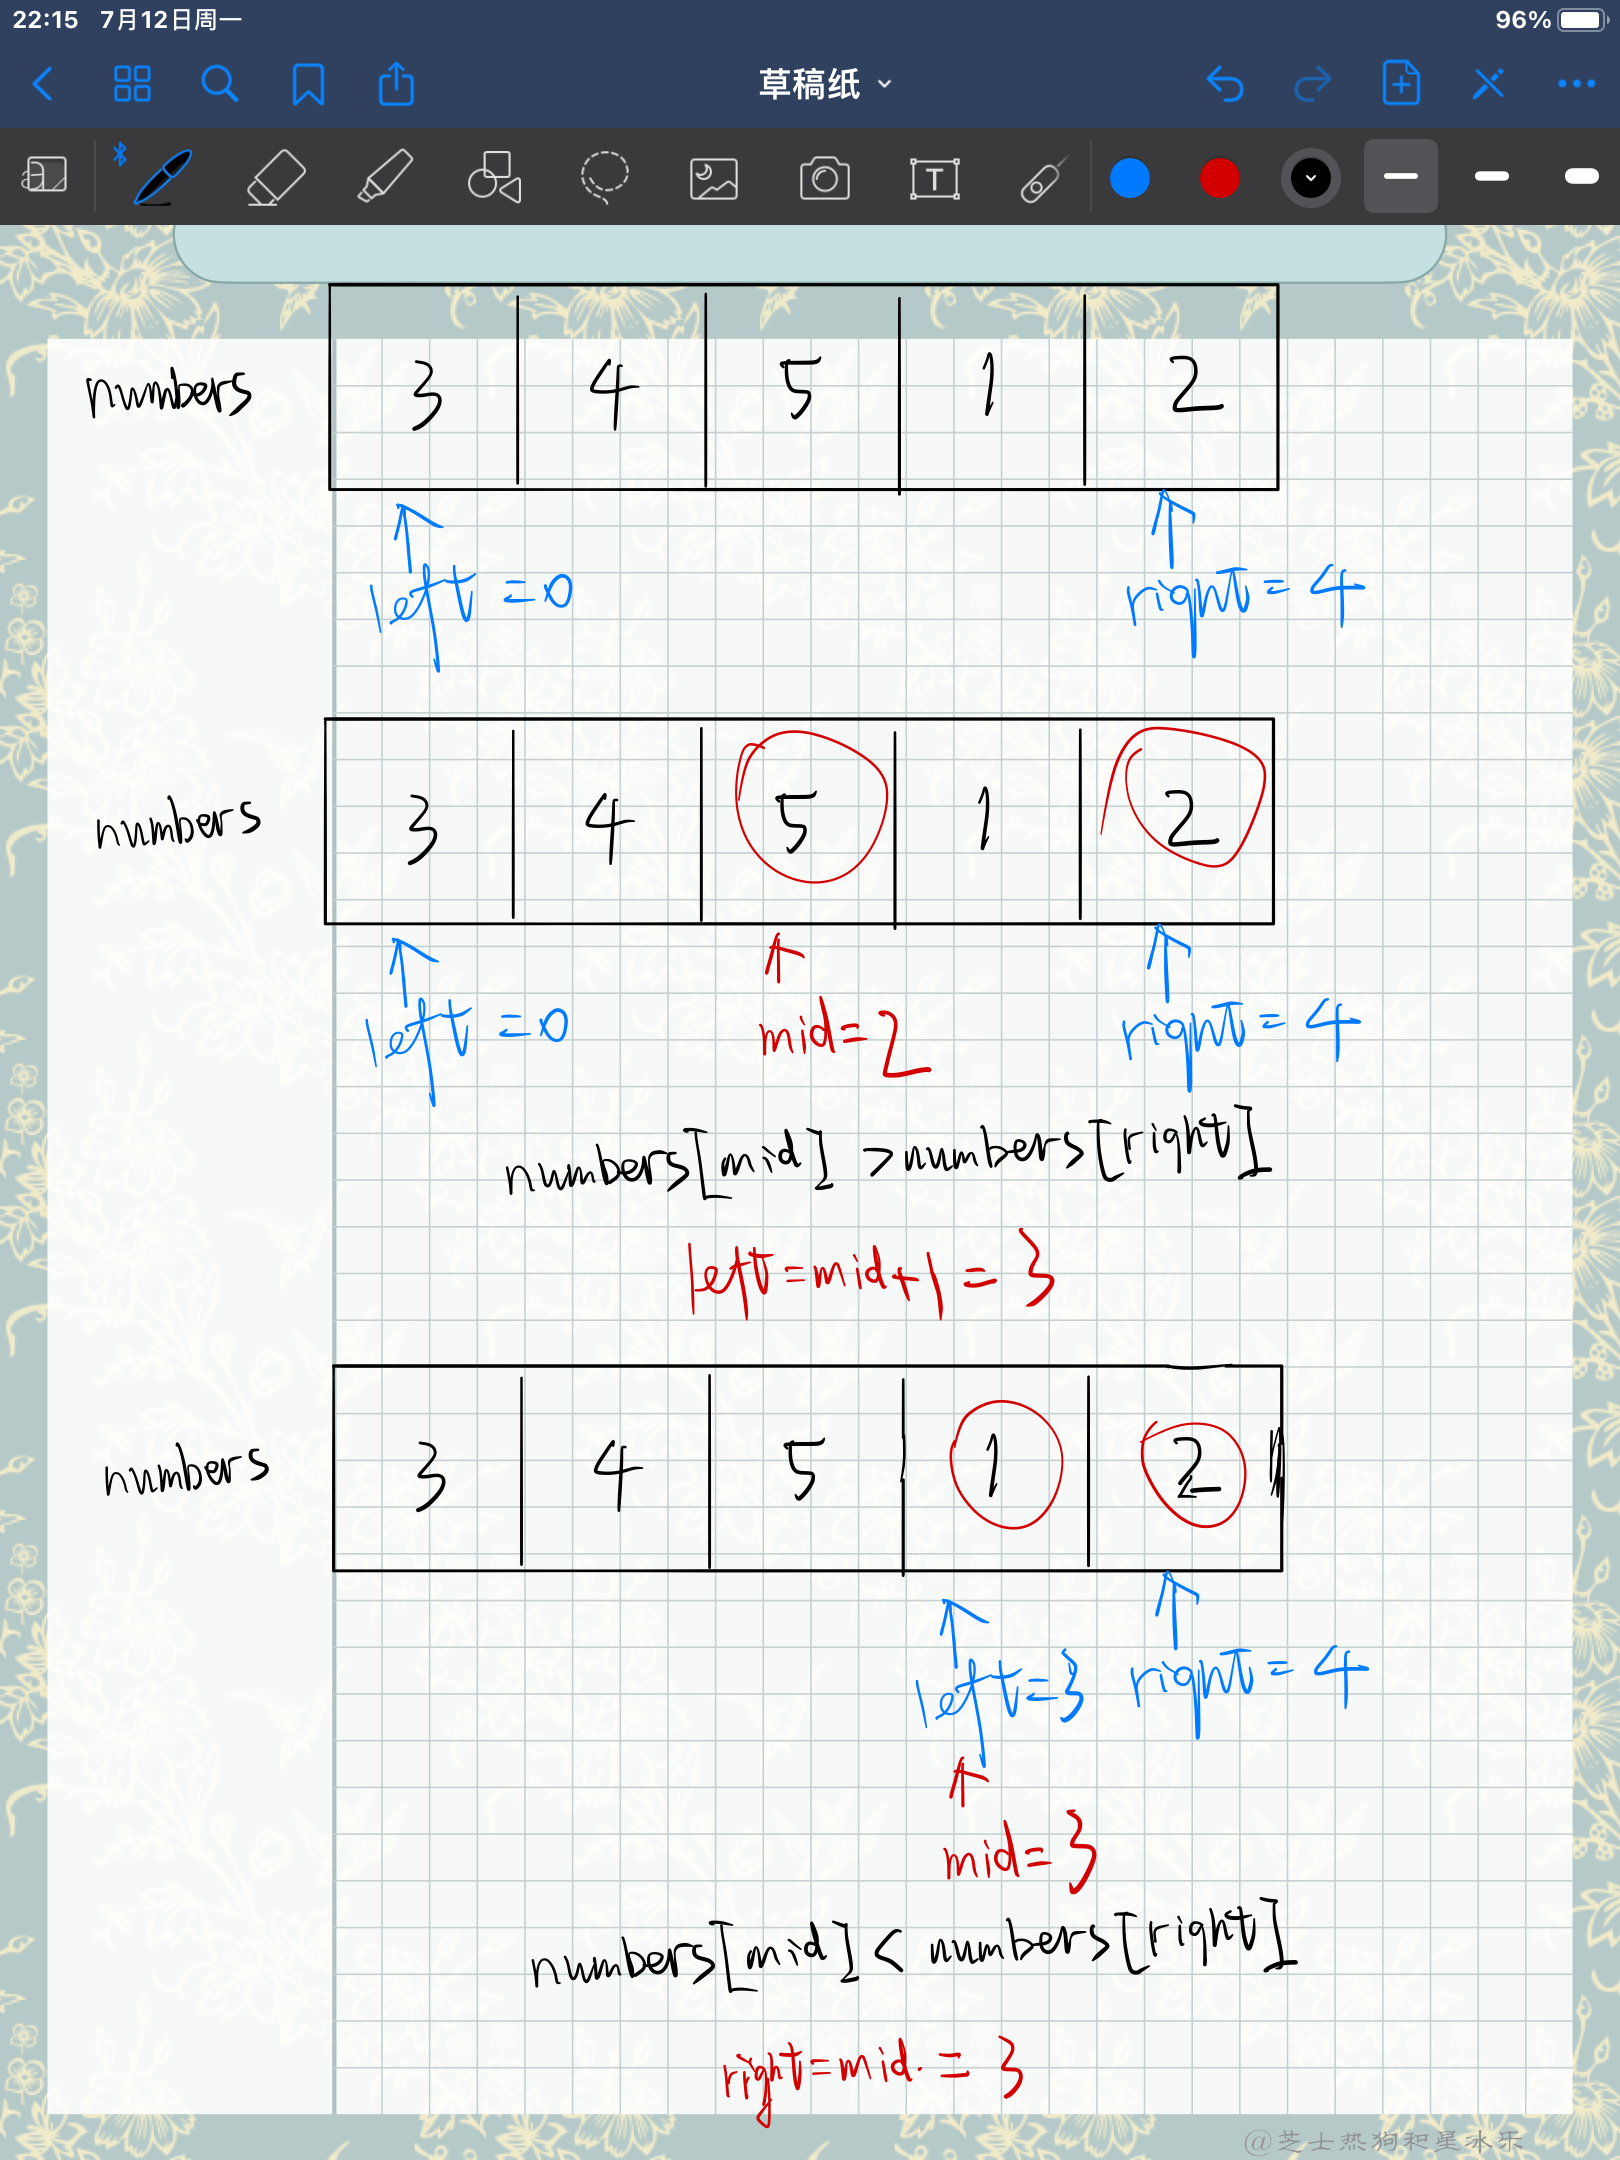 22:15 7月12日周一 96%
草稿纸
T
numbers 3 4 5 1 2
left=0 right=4
numbers 3 4 5 1 2
left=0 mid=2 right=4
numbers[mid] >numbers[right]
left=mid+1=3
numbers 3 4 5 1 2
left=3 right=4
mid=3
numbers[mid]< numbers[right]
right=mid.=3
@芝士热狗和星冰乐